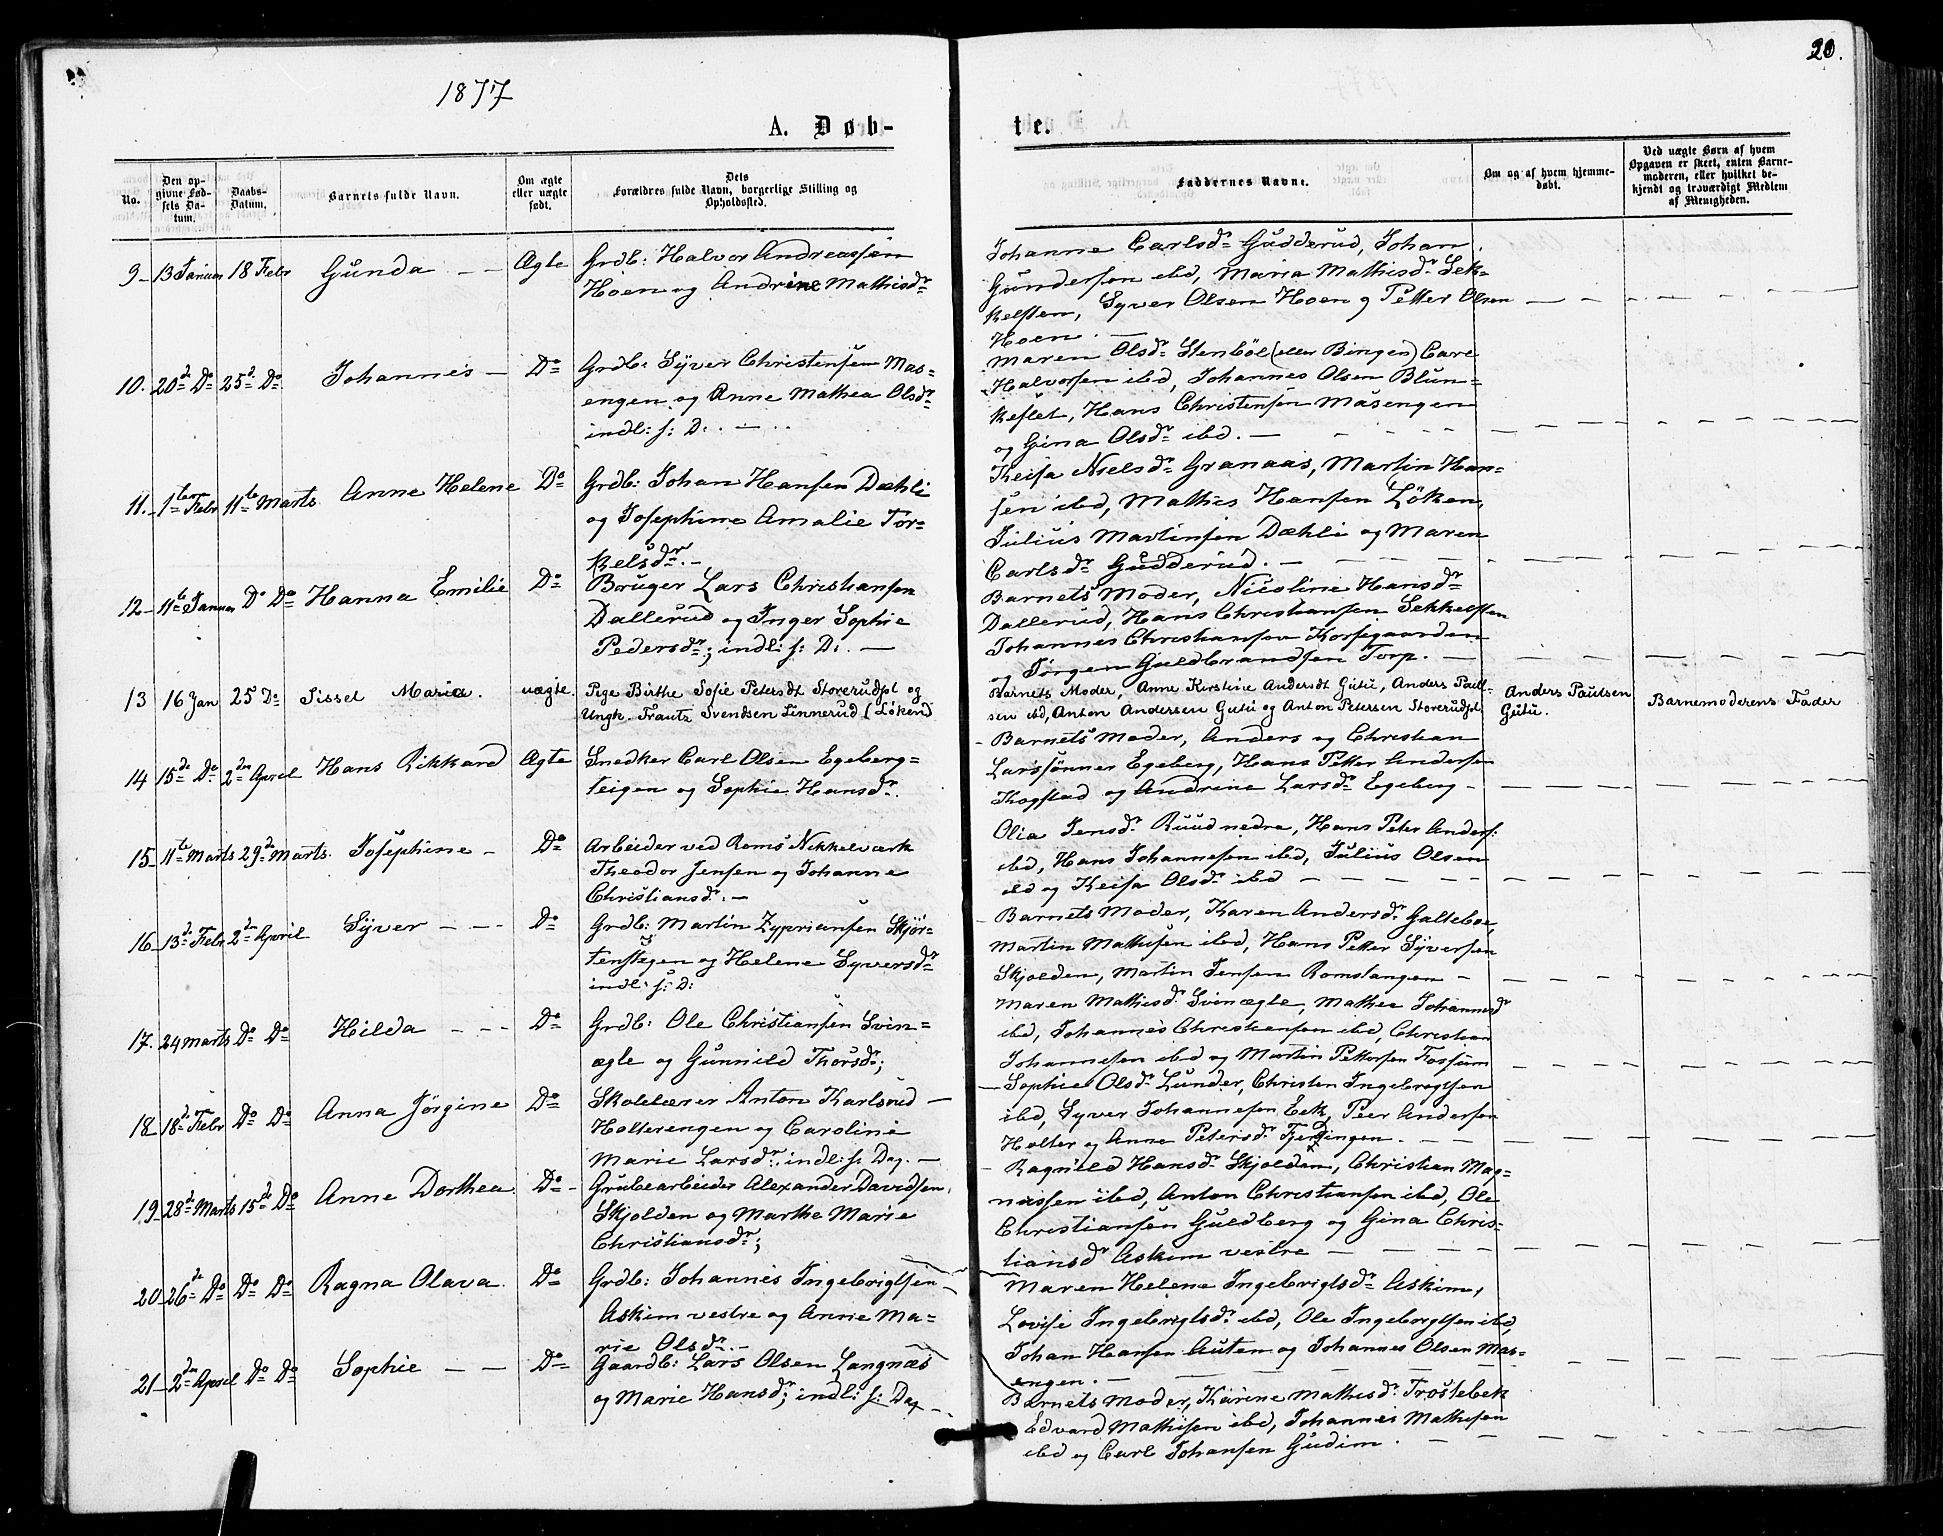 20.
1877
A. Døb-
te.
No.
Den op-
givne Fød-
sels Da-
tum.
Daabs-
Datum.
Barnets fulde Navn.
Om ægte
eller uægte
født.
Dets
Forældres fulde Navn, borgerlige Stilling og
Opholdssted.
Faddernes Navne.
Om og af hvem hjemme-
døbt.
Ved uægte Børn af hvem
Opgaven er skeet, enten Barne-
moderen, eller hvilket be-
kjendt og troværdigt Medlem
af Menigheden.
9 13 Januar 18 Febr Gunda Ægte Grdb: Halvor Andreassen
Hoen og Andrine Mathisdr
Johanne Carlsdr Gudderud, Johan
Gundersen ibd, Maria Mathisdr Sek-
kelsten, Syver Olsen Hoen g Petter Olsen
Hoen.
10. 20de Do 25d Do Johannes Do Grdb: Syver Christensen Mas-
engen og Anne Mathea Olsdr
indl: f: D:
Maren Olsdr Stenböl (eller Bingen) Carl
Halvorsen ibd, Johannes Olsen Blun-
keslet, Hans Christensen Masengen
og Gina Olsdr ibd.
11. 1ste Febr 11te Marts Anne Helene Do Grdb: Johan Hansen Dæhli
og Josephine Amalie Tor-
kelsdr.
Keisa Nielsdr Granaas, Martin Han-
sen ibd, Mathis Hansen Löken,
Julius Martinsen Dæhli og Maren
Carlsdr Gudderud.
12 11te Januar Do Do Hanna Emilie Do Bruger Lars Christiansen
Dallerud og Inger Sophie
Pedersdr; indl: f: D:
Barnets Moder, Nicoline Hansdr
Dallerud, Hans Christiansen Sekkelsten
Johannes Christiansen Korsegaarden
og Jørgen Guldbrandsen Torp.
13 16 Jan 25 Do Sissel Maria. uægte Pige Birthe Sofie Petersdt Storerudpl og
Ungk. Frantz Svendsen Linnerud (Löken)
Barnets Moder, Anne Kirstine Andersdt Gutu, Anders Paul-
sen ibd, Anton Andersen Gutu og Anton Petersen Storerudpl
Anders Paulsen
Gutu.
Barnemoderens Fader
14 15de Do 2den April Hans Rikkard Ægte Snedker Carl Olsen Egeberg-
teigen og Sophie Hansdr.
Barnets Moder, Anders og Christian
Larssønner Egeberg, Hans Petter Andersen
Kogstad og Andrine Larsdr Egeberg
15 11te Marts 29de Marts. Josephine Do Arbeider ved Roms Nikkelværk
Theodor Jensen og Johanne
Christiansdr.
Olia Jensdr Ruud nedre, Hans Peter Anders:
ibd, Hans Johannesen ibd, Julius Olsen
ibd og Keisa Olsdr ibd
16 13de Febr 2den April Syver Do Grdb: Martin Zypriansen Skjör-
tenstegen og Helene Syversdr
indl: f: D:
Barnets Moder, Karen Andersdr Galteboe,
Martin Mathisen ibd, Hans Petter Syversen
Skjolden, Martin Jensen Romstangen
17. 24 Marts Do Do Hilda Do Grdb: Ole Christiansen Svin-
ægle og Gunnild Thorsdr;
Maren Mathisdr Svinægle, Mathea Johannesd
ibd, Johannes Christiansen ibd, Christian
Johannesen ibd og Martin Pettersen Fossum
18 18de Febr Do Do Anna Jörgine Do Skolelærer Anton Karlsrud
Holterengen og Caroline
Marie Larsdr, indl: f: Dag.
Sophie Olsdr Lunder, Christen Ingebregtsen
ibd, Syver Johannesen Eek, Peer Andersen
Holter og Anne Petersdr Fjerdingen.
19 28de Marts 15de Do Anne Dorthea Do Grubearbeider Alexander Davidsen,
Skjolden og Marthe Marie
Christiansdr;
Ragnild Hansdr Skjolden, Christian Mag-
nussen ibd, Anton Christiansen ibd, Ole
Christiansen Guldberg og Gina Chris-
tiansdr Askim vestre
20 26de Do Do Do Ragna Olava Do Grdb: Johannes Ingebrigtsen
Askim vestre og Anne Ma-
rie Olsdr.
Maren Helene Ingebrigtsdr Askim,
Lovise Ingebrigtsdr ibd, Ole Ingebrigtsen ibd,
Johan Hansen Auten og Johannes Olsen Mas-
engen.
21 2den April Do Do Sophie Do Gaardb: Lars Olsen Langnæs
og Marie Hansdr; indl: f: Dag
Barnets Moder, Karine Mathisdr Trostebek
Edvard Mathisen ibd, Johannes Mathisen
ibd og Carl Johansen Gudim.